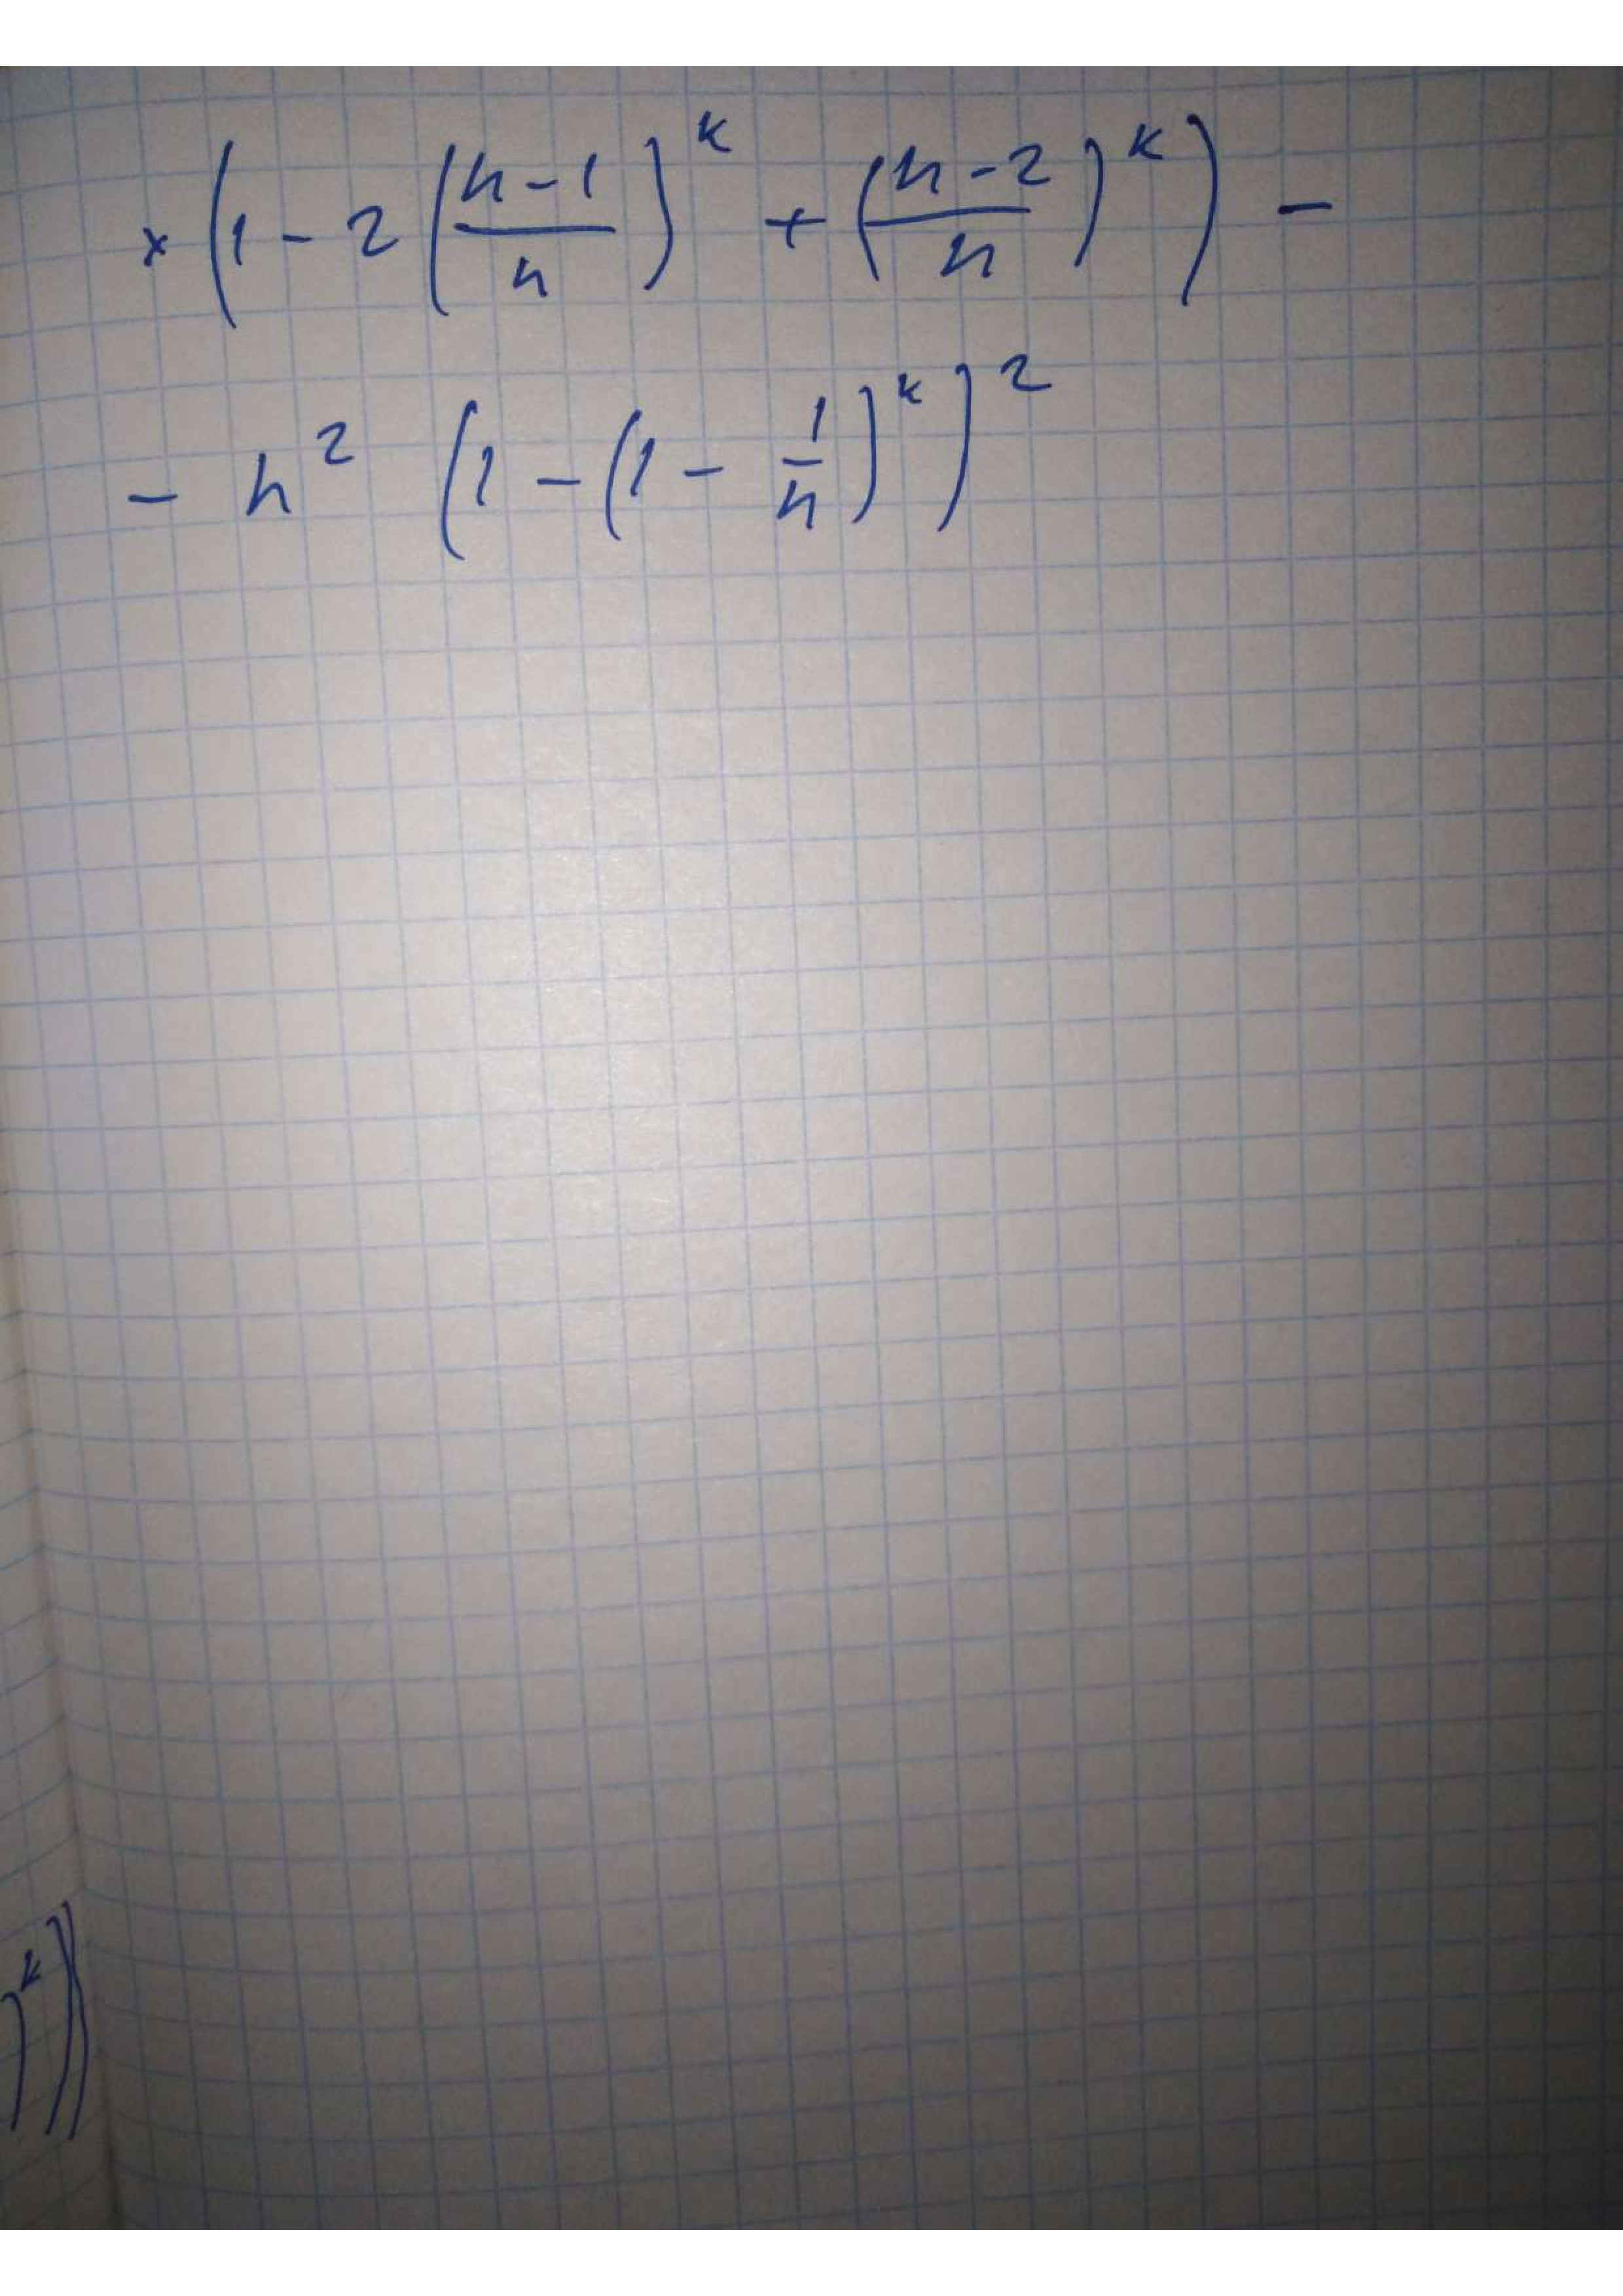 × (1 - 2 ((n-1)/n)^k + ((n-2)/n)^k) -
- n^2 (1 - (1 - 1/n)^k)^2
)^k))